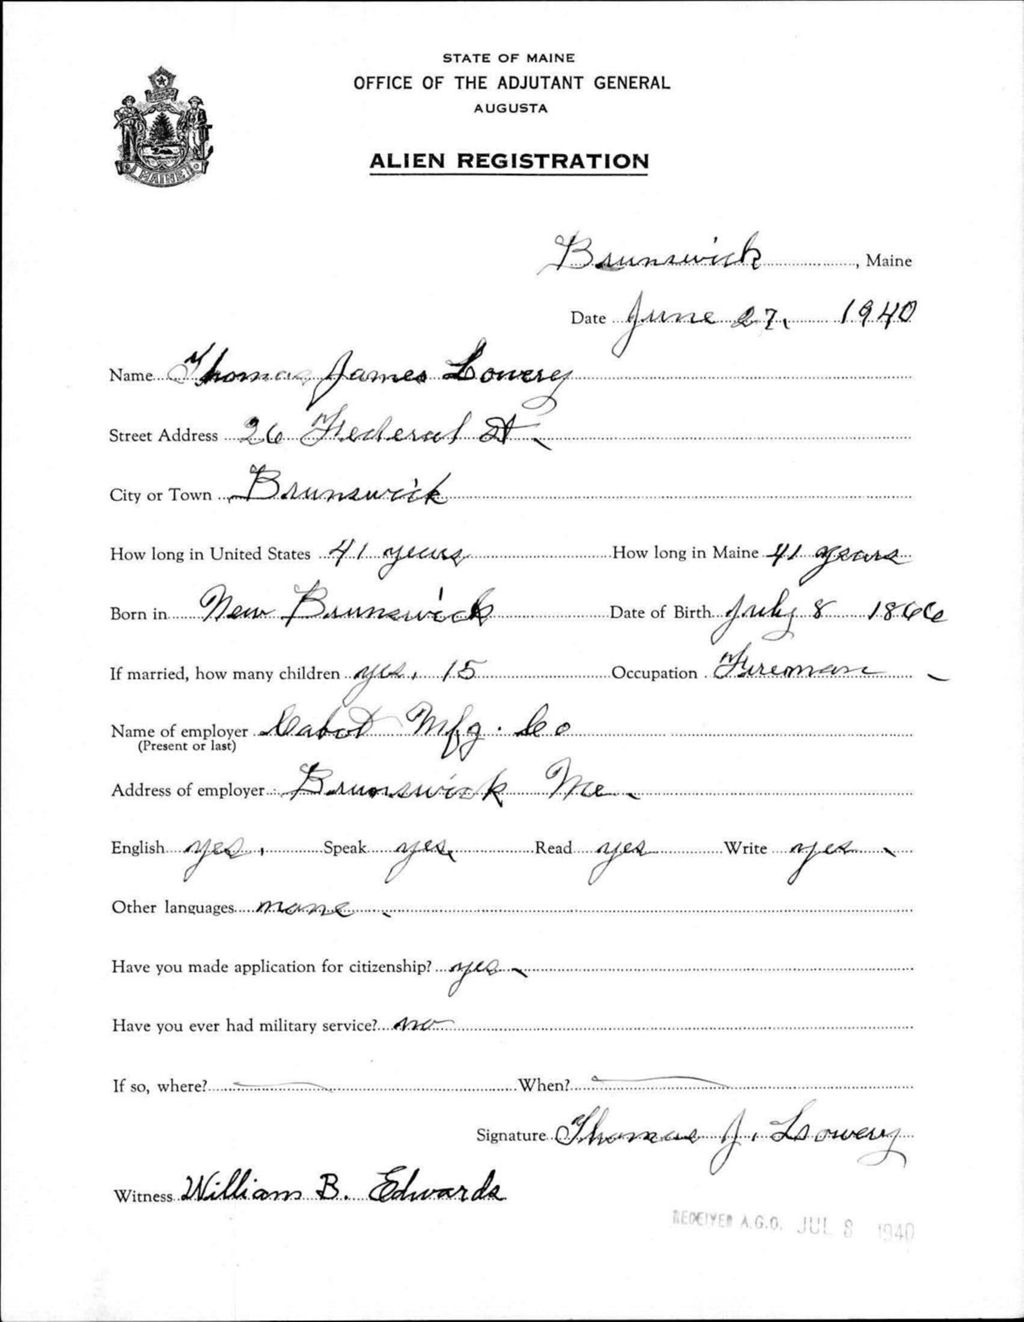 STATE OF MAINE
OFFICE OF THE ADJUTANT GENERAL
AUGUSTA
ALIEN REGISTRATION
MAINE
Brunswick, Maine
Date June 27, 1940
Name Thomas James Lowery
Street Address 26 Federal St
City or Town Brunswick
How long in United States 41 years How long in Maine 41 years
Born in New Brunswick Date of Birth July 8 1866
If married, how many children yes, 15 Occupation Fireman
Name of employer Cabot Mfg. Co
(Present or last)
Address of employer Brunswick Me
English yes, Speak yes, Read yes Write yes
Other languages none
Have you made application for citizenship? yes
Have you ever had military service? no
If so, where? When?
Signature Thomas J. Lowery
Witness William B. Edwards
RECEIVED A.G.O. JUL 8 1940